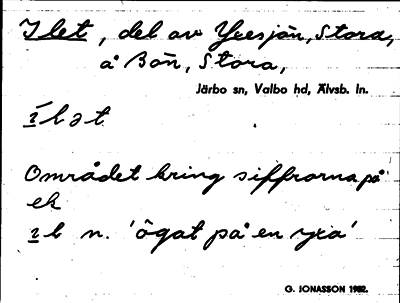 Ilet, del av Yxesjön, Stora,
å Bön, Stora,
Järbo sn, Valbo hd, Älvsb. ln.
ílət
Området kring siffrorna på
ek
íl n. 'ögat på en yxa'
G. JONASSON 1982.